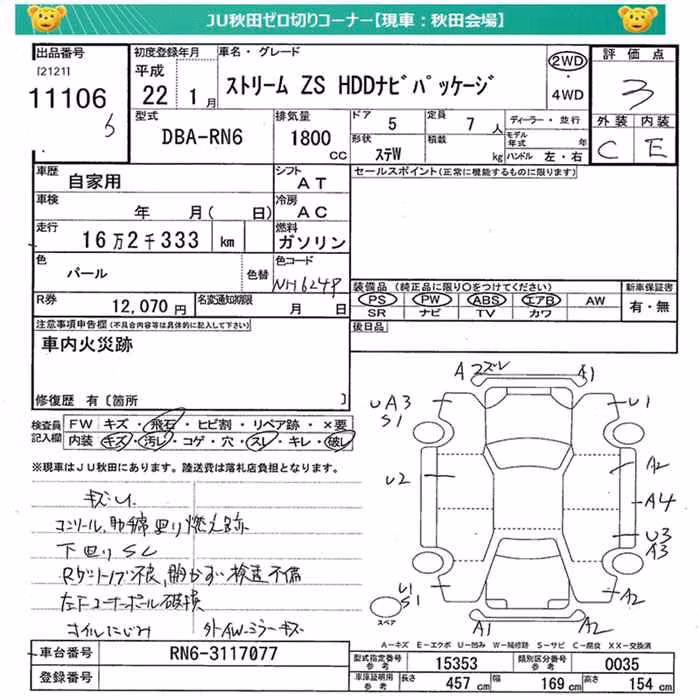 JU秋田ゼロ切りコーナー【現車：秋田会場】
出品番号
[2121]
11106
初度登録年月
平成
22年 1月
車名・グレード
ストリーム ZS HDDナビパッケージ
2WD
4WD
評価点
3
外装 内装
C E
型式
DBA-RN6
排気量
1800
CC
ドア
5
定員
7人
形状
ステW
積載
kg
ディーラー・並行
モデル年式 年
ハンドル 左・右
車歴
自家用
シフト
AT
車検
年 月( 日)
冷房
AC
走行
16万2千333 km
燃料
ガソリン
色
パール
色替
色コード
NH624P
R券
12,070円
名変通知期限
月 日
セールスポイント(正常に機能するものに限ります)
装備品 (純正品に限り○をつけてください)
PS PW ABS エアB AW
SR ナビ TV カワ
新車保証書
有・無
後日品
注意事項申告欄(不具合内容等は具体的に記入して下さい)
車内火災跡
修復歴 有〔箇所 〕
検査員記入欄
FW キズ・飛石・ヒビ割・リペア跡・×要
内装 キズ・汚レ・コゲ・穴・スレ・キレ・破レ
※現車はJU秋田にあります。陸送費は落札店負担となります。
キズU
コンソール,助手席回り燃え跡
下回りSL
開かずい検査不備
左下コーナーポール破損
オイルにじみ 外AWミラーキズ
Aスズレ A1
UA3
S1
U1
U2
A2
A4
U3
A3
U1
S1
A2
A1 A2
スペア
A－キズ E－エクボ U－凹み W－補修跡 S－サビ C－腐食 XX－交換済
車台番号
RN6-3117077
登録番号
型式指定番号 参考
15353
類別区分番号 参考
0035
車庫証明用 参考
長さ 457 cm
幅 169 cm
高さ 154 cm